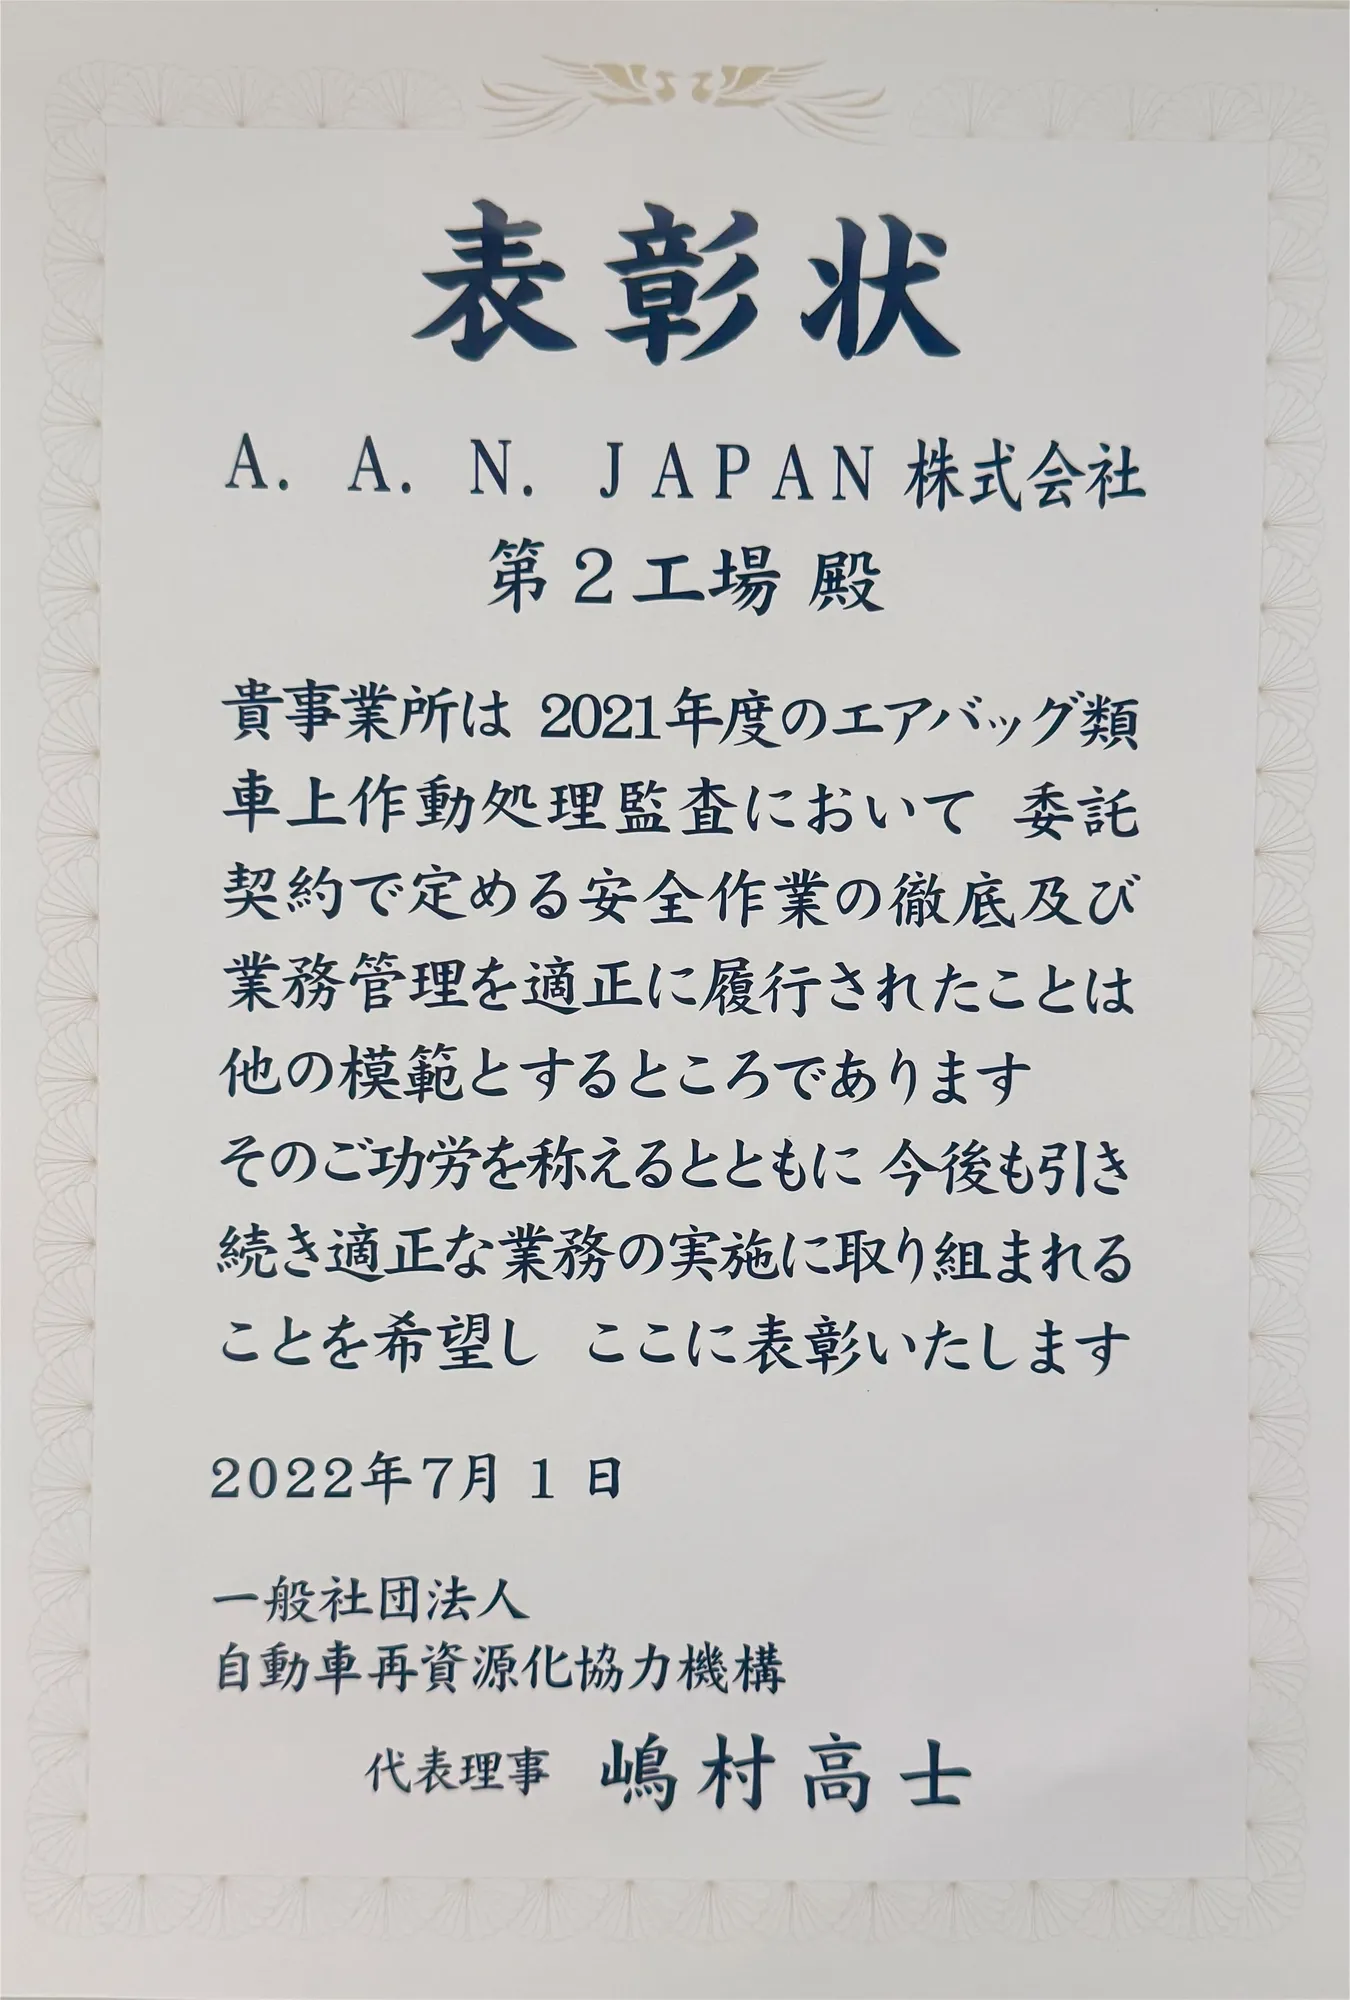 表彰状
A. A. N. JAPAN 株式会社
第2工場 殿
貴事業所は 2021年度のエアバッグ類
車上作動処理監査において 委託
契約で定める安全作業の徹底及び
業務管理を適正に履行されたことは
他の模範とするところであります
そのご功労を称えるとともに 今後も引き
続き適正な業務の実施に取り組まれる
ことを希望し ここに表彰いたします
2022年7月1日
一般社団法人
自動車再資源化協力機構
代表理事 嶋村高士